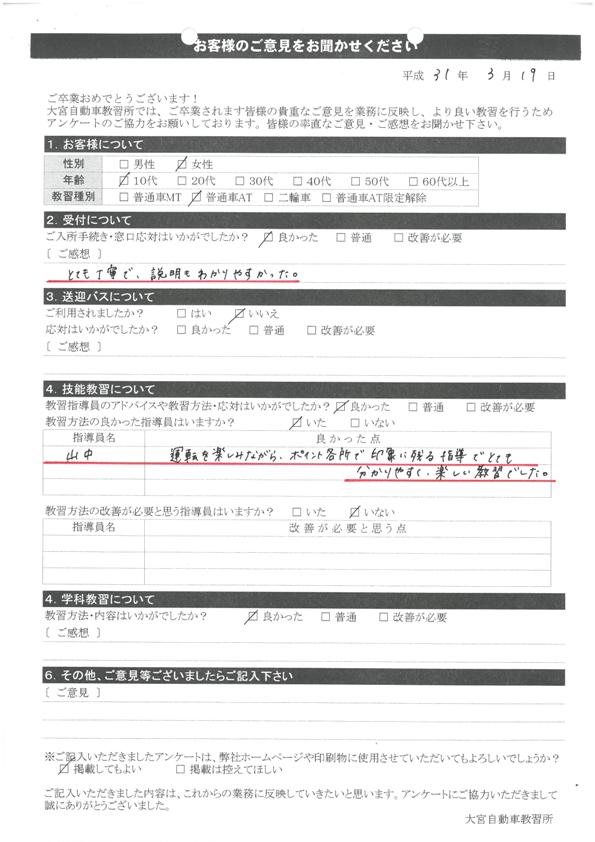 お客様のご意見をお聞かせください
平成 31 年 3 月 19 日
ご卒業おめでとうございます！
大宮自動車教習所では、ご卒業されます皆様の貴重なご意見を業務に反映し、より良い教習を行うため
アンケートのご協力をお願いしております。皆様の率直なご意見・ご感想をお聞かせ下さい。
1. お客様について
性別 □ 男性 ☑ 女性
年齢 ☑ 10代 □ 20代 □ 30代 □ 40代 □ 50代 □ 60代以上
教習種別 □ 普通車MT ☑ 普通車AT □ 二輪車 □ 普通車AT限定解除
2. 受付について
ご入所手続き・窓口応対はいかがでしたか？ ☑ 良かった □ 普通 □ 改善が必要
〔 ご感想 〕
とても丁寧で、説明もわかりやすかった。
3. 送迎バスについて
ご利用されましたか？ □ はい ☑ いいえ
応対はいかがでしたか？ □ 良かった □ 普通 □ 改善が必要
〔 ご感想 〕
4. 技能教習について
教習指導員のアドバイスや教習方法・応対はいかがでしたか？ ☑ 良かった □ 普通 □ 改善が必要
教習方法の良かった指導員はいますか？ ☑ いた □ いない
指導員名 良かった点
山中 運転を楽しみながら、ポイント各所で印象に残る指導でとても
分かりやすく、楽しい教習でした。
教習方法の改善が必要と思う指導員はいますか？ □ いた ☑ いない
指導員名 改善が必要と思う点
4. 学科教習について
教習方法・内容はいかがでしたか？ ☑ 良かった □ 普通 □ 改善が必要
〔 ご感想 〕
6. その他、ご意見等ございましたらご記入下さい
〔 ご意見 〕
※ご記入いただきましたアンケートは、弊社ホームページや印刷物に使用させていただいてもよろしいでしょうか？
☑ 掲載してもよい □ 掲載は控えてほしい
ご記入いただきました内容は、これからの業務に反映していきたいと思います。アンケートにご協力いただきまして
誠にありがとうございました。
大宮自動車教習所